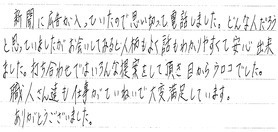 新聞に広告が入っていたので思い切って電話しました。どんな人だろう
と思っていましたがお会いしてみると人柄もよく話もわかりやすくて安心出来
ました。打ち合わせではいろんな提案をして頂き目からウロコでした。
職人さん達も仕事がていねいで大変満足しています。
ありがとうございました。